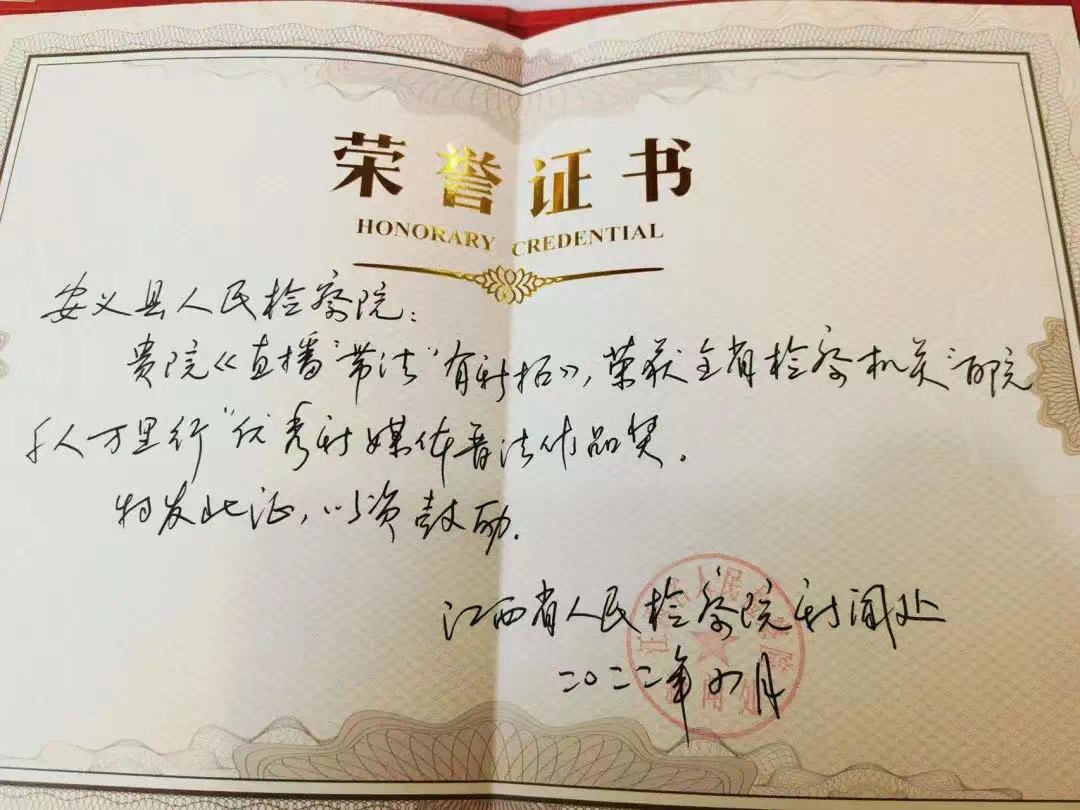 荣誉证书
HONORARY CREDENTIAL
安义县人民检察院：
贵院《直播“带法”有新招》，荣获全省检察机关“百院
千人万里行”优秀新媒体普法作品奖。
特发此证，以资鼓励。
江西省人民检察院新闻处
二〇二二年 月